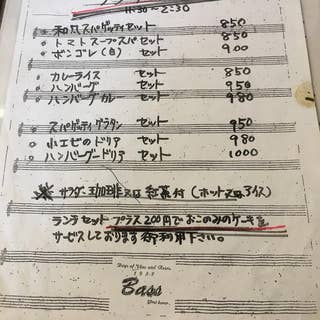 11:30～2:30
和風スパゲッティセット 850
トマトスープスパセット 850
ボンゴレ(白) セット 900
カレーライス セット 850
ハンバーグ セット 950
ハンバーグカレー セット 980
スパゲッティグラタン セット 950
小エビのドリア セット 980
ハンバーグードリア セット 1000
サラダ 珈琲又は紅茶付(ホット又はアイス)
ランチセットプラス200円でおこのみのケーキを
サービスしております御利用下さい。
Days of Wine and Roses
Bass